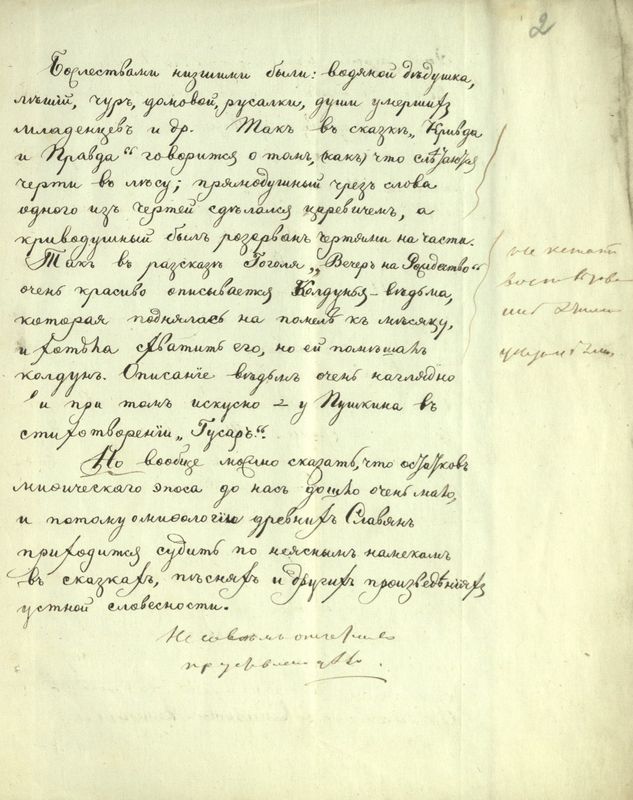 2
Божествами низшими были: водяной дѣдушка,
лѣшій, чуръ, домовой, русалки, души умершихъ
младенцевъ и др. Такъ въ сказкѣ „Кривда
и Правда“ говорится о томъ, какъ, что случаются
черти въ лѣсу; прямодушный чрезъ слова
одного изъ чертей сдѣлался царевичемъ, а
криводушный былъ розорванъ чертями на части.
Такъ въ разсказѣ Гоголя „Вечеръ на Рождество“
очень красиво описывается Колдунья-вѣдьма,
которая поднялась на помелѣ къ мѣсяку,
и хотѣла схватить его, но ей помѣшалъ
колдунъ. Описаніе вѣдьмъ очень наглядно
и при томъ искусно – у Пушкина въ
стихотвореніи „Гусаръ“.
Но вообще можно сказать, что остатковъ
мифическаго эпоса до насъ дошло очень мало,
и потому о мифологіи древнихъ Славянъ
приходится судить по неяснымъ намекамъ
въ сказкахъ, пѣсняхъ и другихъ произведѣніяхъ
устной словесности.
не кстати
Не совсѣмъ отчетливо